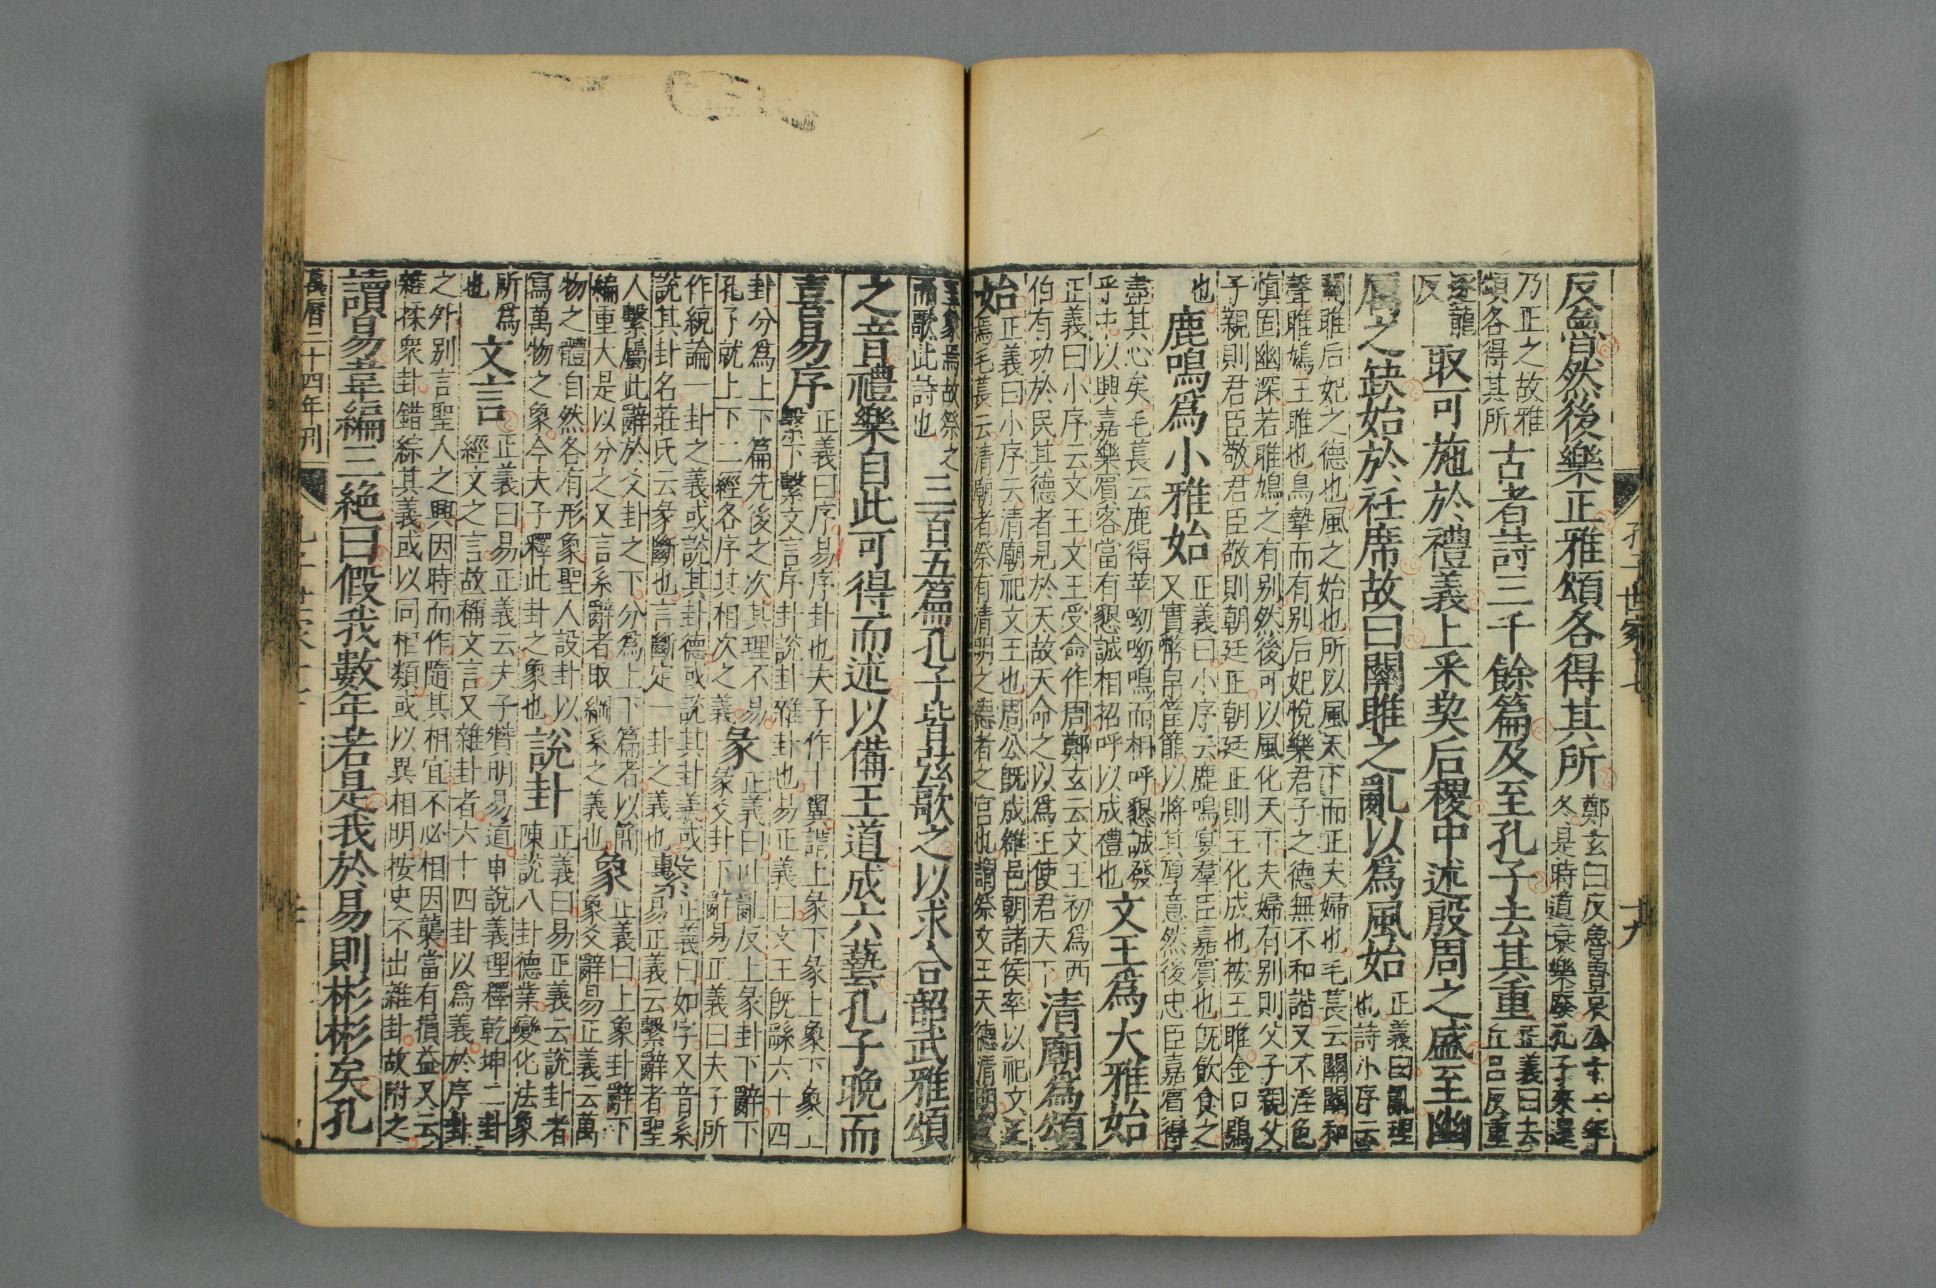 孔子世家十七
十九
反魯然後樂正雅頌各得其所
鄭玄曰反魯魯哀公十一年
冬是時道衰樂廢孔子來還
乃正之故雅
頌各得其所
古者詩三千餘篇及至孔子去其重
正義曰去
丘呂反重
逐龍
反
取可施於禮義上采契后稷中述殷周之盛至幽
厲之缺始於衽席故曰關雎之亂以爲風始
正義曰亂理
也詩小序云
關雎后妃之德也風之始也所以風天下而正夫婦也毛萇云關關和
聲雎鳩王雎也鳥摯而有別后妃悅樂君子之德無不和諧又不淫色
慎固幽深若雎鳩之有別然後可以風化天下夫婦有別則父子親父
子親則君臣敬君臣敬則朝廷正朝廷正則王化成也按王雎金口鶚
也
鹿鳴爲小雅始
正義曰小序云鹿鳴宴羣臣嘉賓也旣飲食之
又實幣帛筐篚以將其厚意然後忠臣嘉賓得
盡其心矣毛萇云鹿得苹呦呦鳴而相呼懇誠發
乎中以興嘉樂賓客當有懇誠相招呼以成禮也
文王爲大雅始
正義曰小序云文王文王受命作周鄭玄云文王初爲西
伯有功於民其德著見於天故天命之以爲王使君天下
清廟爲頌
始
正義曰小序云清廟祀文王也周公旣成雒邑朝諸侯率以祀文王
焉毛萇云清廟者祭有清明之德者之宮也謂祭文王天德清明文
王象焉故祭之
而歌此詩也
三百五篇孔子皆弦歌之以求合韶武雅頌
之音禮樂自此可得而述以備王道成六藝孔子晚而
喜易序
正義曰序易序卦也夫子作十翼謂上彖下彖上象下象上
繫下繫文言序卦說卦雜卦也易正義曰文王旣繇六十四
卦分爲上下篇先後之次其理不易
孔子就上下二經各序其相次之義
彖
正義曰上彖卦下辭下
彖爻卦下辭易正義曰夫子所
作統論一卦之義或說其卦德或說其卦義或
說其卦名莊氏云彖斷也言斷定一卦之義也
繫
正義曰如字又音系
易正義云繫辭者聖
人繫屬此辭於爻卦之下分爲上下篇者以簡
編重大是以分之又言系辭者取綱系之義也
象
正義曰上象卦辭下
象爻辭易正義云萬
物之體自然各有形象聖人設卦以
寫萬物之象今夫子釋此卦之象也
說卦
正義曰易正義云說卦者
陳說八卦德業變化法象
所爲
也
文言
正義曰易正義云夫子贊明易道申說義理釋乾坤二卦
經文之言故稱文言又雜卦者六十四卦以爲義於序卦
之外別言聖人之興因時而作隨其相宜不必相因襲當有損益又云
雜揉衆卦錯綜其義或以同相類或以異相明按史不出雜卦故附之
讀易韋編三絕曰假我數年若是我於易則彬彬矣孔
萬曆二十四年刊